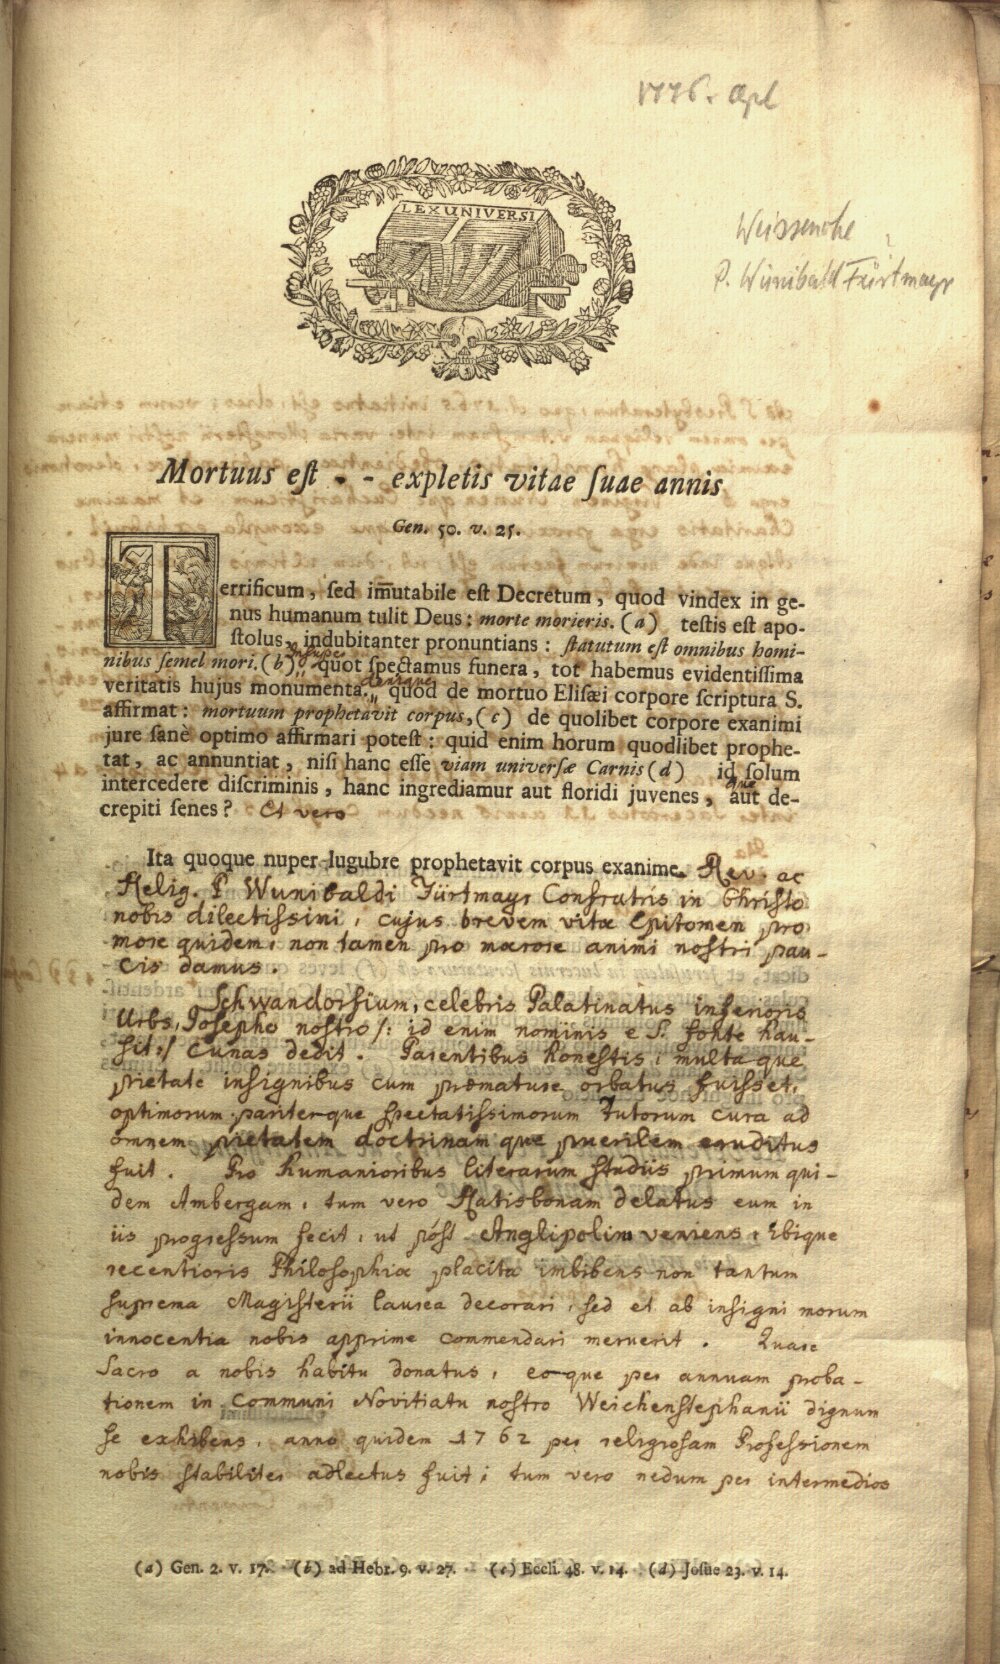 1776. Apl
LEX UNIVERSI
Weissenohe
P. Wunibald Fürtmayr
Mortuus eſt - - expletis vitae ſuae annis
Gen. 50. v. 25.
Terrificum, ſed im̅utabile eſt Decretum, quod vindex in ge-
nus humanum tulit Deus: morte morieris. (a) teſtis eſt apo-
ſtolus indubitanter pronuntians: ſtatutum eſt omnibus homi-
nibus ſemel mori. (b) insuper quot ſpectamus funera, tot habemus evidentiſſima
veritatis hujus monumenta. denique quod de mortuo Eliſæi corpore ſcriptura S.
affirmat: mortuum prophetavit corpus, (c) de quolibet corpore exanimi
jure ſanè optimo affirmari poteſt: quid enim horum quodlibet prophe-
tat, ac annuntiat, niſi hanc eſſe viam univerſæ Carnis (d) id ſolum
intercedere diſcriminis, hanc ingrediamur aut floridi juvenes, aut de-
crepiti ſenes? Et vero
Ita quoque nuper lugubre prophetavit corpus exanime. Rev. ac
Relig. P. Wunibaldi Fürtmayr Confratris in Christo
nobis dilectissimi, cujus brevem vitæ Epitomen pro
more quidem, non tamen pro mœrore animi nostri pau-
cis damus.
Schwandorfium, celebris Palatinatus inferioris
Urbs, Josepho nostro /: id enim nominis e S. fonte hau-
sit :/ cunas dedit. Parentibus honestis, multaque
pietate insignibus cum præmature orbatus fuisset,
optimorum pariterque spectatissimorum Tutorum cura ad
omnem pietatem doctrinamque puerilem eruditus
fuit. Pro humanioribus literarum studiis primum qui-
dem Ambergam, tum vero Ratisbonam delatus eum in
iis progressum fecit, ut póst Anglipolim veniens, Ubique
recentioris Philosophiæ placita imbibens non tantum
suprema Magisterii laurea decorari, sed et ab insigni morum
innocentia nobis apprime commendari meruerit. Quare
Sacro a nobis habitu donatus, eoque per annuam proba-
tionem in Communi Novitiatu nostro Weichenstephanii dignum
se exhibens, anno quidem 1762 per religiosam Professionem
nobis stabiliter adlectus fuit; tum vero nedum per intermedios
(a) Gen. 2. v. 17. (b) ad Hebr. 9. v. 27. (c) Eccli. 48. v. 14. (d) Joſue 23. v. 14.